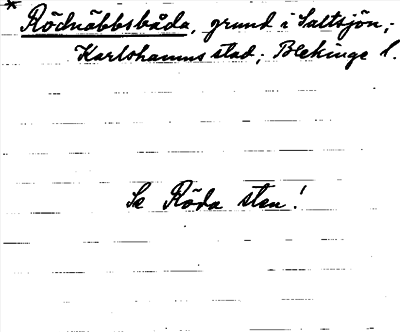 * Rödnäbbsbåda, grund i Saltsjön,;
Karlshamns stad; Blekinge l.
Se Röda sten!